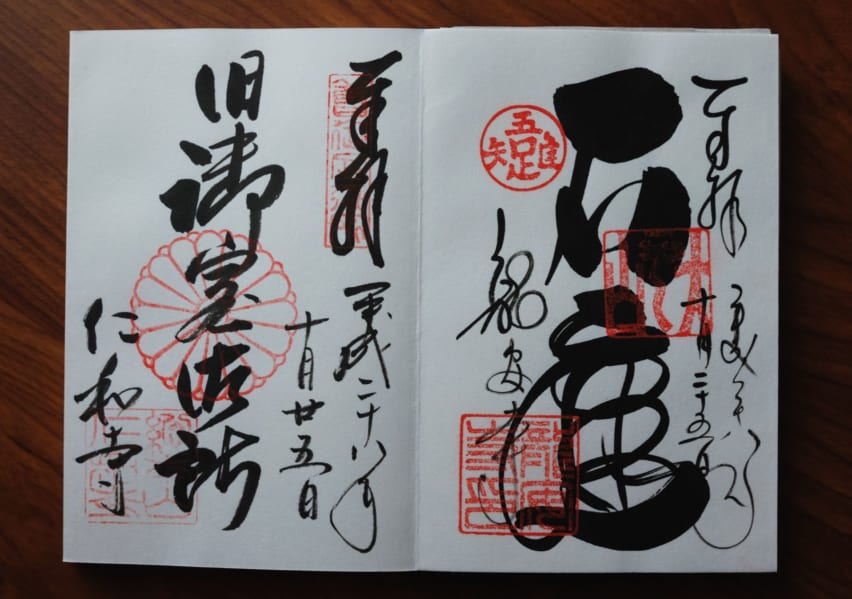 奉拝
平成二十八年
十月二十五日
石庭
吾唯足知
龍安寺
龍安寺印
奉拝
平成二十八年
十月廿五日
旧御室御所
仁和寺